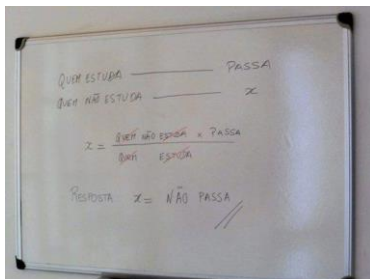 QUEM ESTUDA ——— PASSA
QUEM NÃO ESTUDA ——— x
x = QUEM NÃO ESTUDA × PASSA
QUEM ESTUDA
RESPOSTA x = NÃO PASSA //